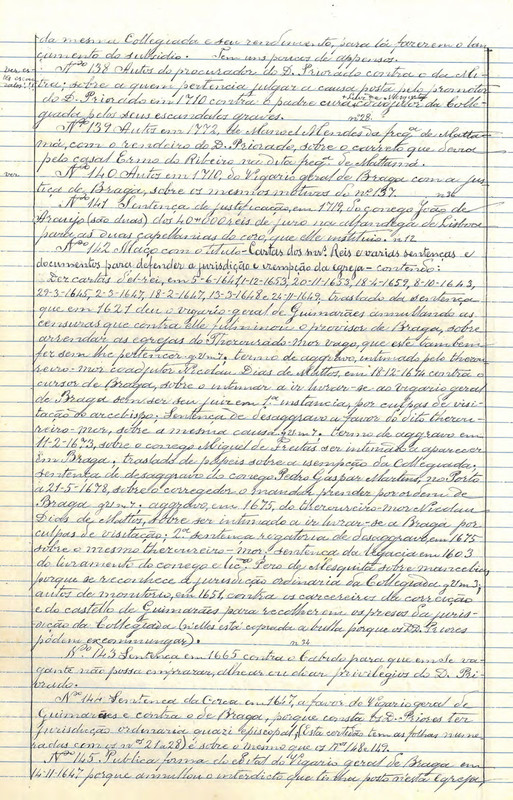 da mesma Collegiada e seu rendimento, para lá fazerem o lan-
çamento do subsidio. Tem uns poucos de appensos.
Nº 138 Autos do procurador do D. Priorado contra o da Mi-
tra, sobre a quem pertencia julgar a causa posta pelo promotor
do D. Priorado em 1710 contra o padre cura coadjutor da Colle-
giada pelos seus escandalos graves. nº 28.
Nº 139 Autos em 1772, de Manoel Mendes da freg.ª de Matta-
má, com o rendeiro do D. Priorado, sobre o carreto que devia
pelo casal Ermo do Ribeiro na dita freg.ª de Mattamá.
ver Nº 140 Autos em 1710, do Vigario geral de Braga com a jus-
tiça de Braga, sobre os mesmos motivos do nº 137. n 36
Nº 141 Sentença de justificação, em 1719, do conego João de
Araujo (são duas) dos 40$000 réis de juro na alfandega de Lisboa
para as duas capellanias do coro, que elle instituio. n 12
Nº 142 Maço com o titulo - Cartas dos snrs. Reis e varias sentenças e
documentos para defender a jurisdição e izempção da egreja - contendo:
Dez cartas d'el-rei, em 5-6-1647, 1-12-1653, 20-11-1653, 18-4-1659, 8-10-1643,
29-3-1645, 2-3-1647, 18-2-1647, 13-3-1648 e 24-11-1649, traslado da sentença
que em 1621 deu o vigario geral de Guimarães annullando as
censuras que contra elle fulminou o provisor de Braga, sobre
arrendar as egrejas do Thezourado-mor vago, que este tambem
fez sem lhe pertencer; termo de aggravo, intimado pelo thezou-
reiro-mor coadjutor Nicolau Dias de Mattos, em 18-12-1674 contra o
cursor de Braga, sobre o intimar a ir livrar-se ao vigario geral
de Braga sem ser seu juiz em 1ª instancia, por culpas de visi-
tação do arcebispo; sentença de desaggravo a favor do dito thezou-
reiro-mor, sobre a mesma causa; termo de aggravo em
11-2-1673, sobre o conego Miguel de Freitas ser intimado a aparecer
em Braga; traslado de papeis sobre a isempção da Collegiada;
sentença de desaggravo do conego Pedro Gaspar Martins, no Porto
a 21-5-1678, sobre o corregedor o mandar prender por ordem de
Braga; aggravo, em 1675, do thezoureiro-mor Nicolau
Dias de Mattos, sobre ser intimado a ir livrar-se a Braga por
culpas de visitação; 2ª sentença regatoria de desaggravo, em 1675
sobre o mesmo thezoureiro-mor; sentença da legacia em 1603
do livramento do conego e lic.do Pero de Mesquita sobre mancebia,
porque se reconhece a jurisdição ordinaria da Collegiada;
autos de monitorio, em 1651, contra os carcereiros da correição
e do castello de Guimarães para recolherem os presos da juris-
dição da Collegiada (n'elles está copiada a bulla porque os D. Priores
pódem excommungar). n 24
Nº 143 Sentença em 1665 contra o Cabido para que em Se va-
gante não possa emprazar, alhear ou doar privilegios do D. Pri-
orado.
Nº 144 Sentença da Coroa em 1617, a favor do Vigario geral de
Guimarães e contra o de Braga, porque consta os D. Priores ter
jurisdição ordinaria quazi episcopal. (Esta certidão tem as folhas nume-
radas com os nos 21 a 28) é sobre o mesmo que os nos 148 e 149.
Nº 145 Publica forma do edital do Vigario geral de Braga em
14-11-1647 porque annullou o interdicto que tinha posto n'esta Egreja,